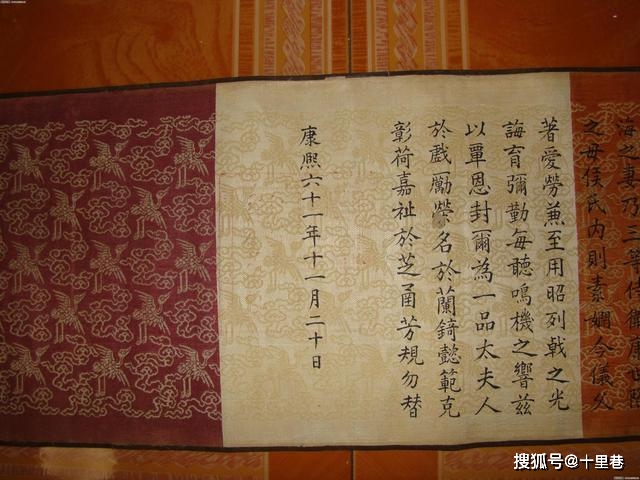 海之妻乃三等侍衛
之母侯氏內則素嫻今儀久
著愛勞蒹至用昭列戟之光
誨育彌勤每聽鳴機之響茲
以覃恩封爾為一品太夫人
於戲勵榮名於蘭錡懿範克
彰荷嘉祉於芝函芳規勿替
康熙六十一年十一月二十日
搜狐号@十里巷